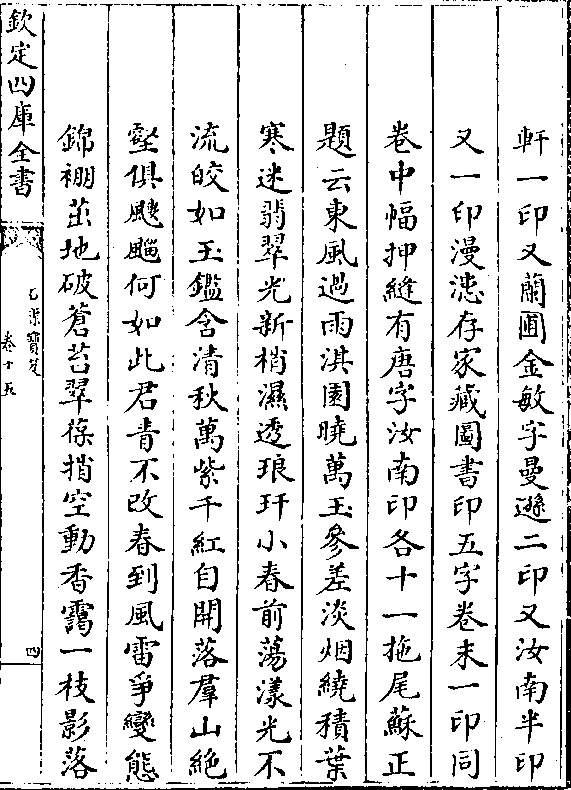 軒一印又蘭圃金敏字曼遜二印又汝南半印
又一印漫漶存家藏圖書印五字卷末一印同
卷中幅押縫有唐字汝南印各十一拖尾蘇正
題云東風過雨淇園曉萬玉參差淡烟繞積葉
寒迷翡翠光新梢濕透琅玕小春前蕩漾光不
流皎如玉鑑含清秋萬紫千紅自開落羣山絶
壑俱颼飀何如此君青不改春到風雷爭變態
錦襉茁地破蒼苔翠葆捎空動香靄一枝影落
欽定四庫全書
石渠寶笈
卷十五
四